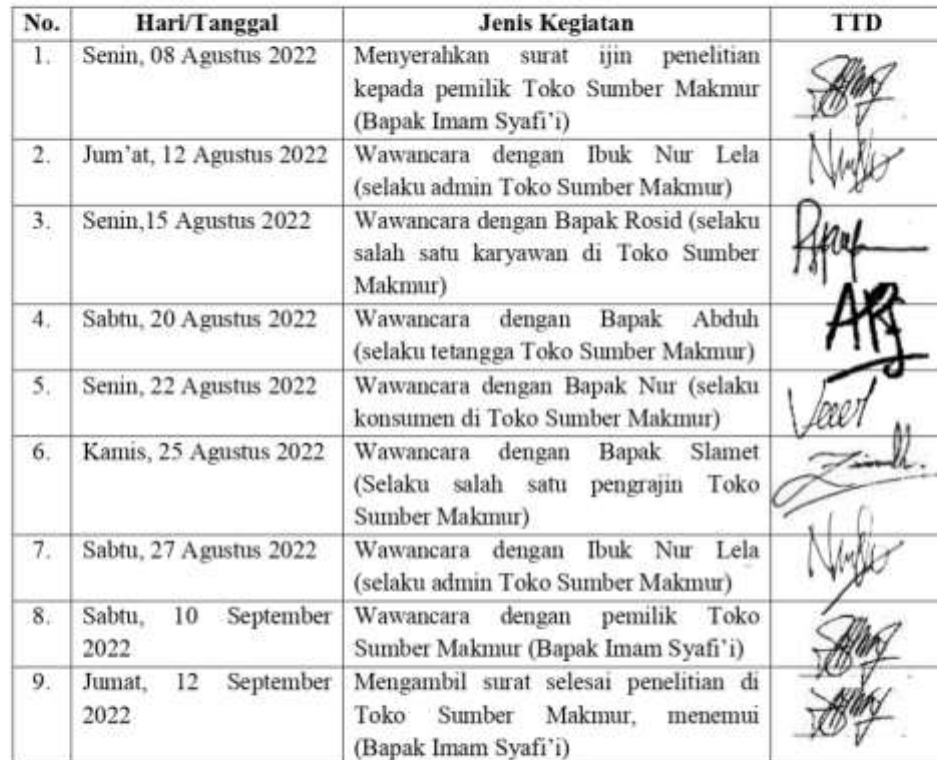 No. Hari/Tanggal Jenis Kegiatan TTD
1. Senin, 08 Agustus 2022 Menyerahkan surat ijin penelitian
kepada pemilik Toko Sumber Makmur
(Bapak Imam Syafi'i)
2. Jum'at, 12 Agustus 2022 Wawancara dengan Ibuk Nur Lela
(selaku admin Toko Sumber Makmur)
3. Senin,15 Agustus 2022 Wawancara dengan Bapak Rosid (selaku
salah satu karyawan di Toko Sumber
Makmur)
4. Sabtu, 20 Agustus 2022 Wawancara dengan Bapak Abduh
(selaku tetangga Toko Sumber Makmur)
5. Senin, 22 Agustus 2022 Wawancara dengan Bapak Nur (selaku
konsumen di Toko Sumber Makmur)
6. Kamis, 25 Agustus 2022 Wawancara dengan Bapak Slamet
(Selaku salah satu pengrajin Toko
Sumber Makmur)
7. Sabtu, 27 Agustus 2022 Wawancara dengan Ibuk Nur Lela
(selaku admin Toko Sumber Makmur)
8. Sabtu, 10 September Wawancara dengan pemilik Toko
2022 Sumber Makmur (Bapak Imam Syafi'i)
9. Jumat, 12 September Mengambil surat selesai penelitian di
2022 Toko Sumber Makmur, menemui
(Bapak Imam Syafi'i)